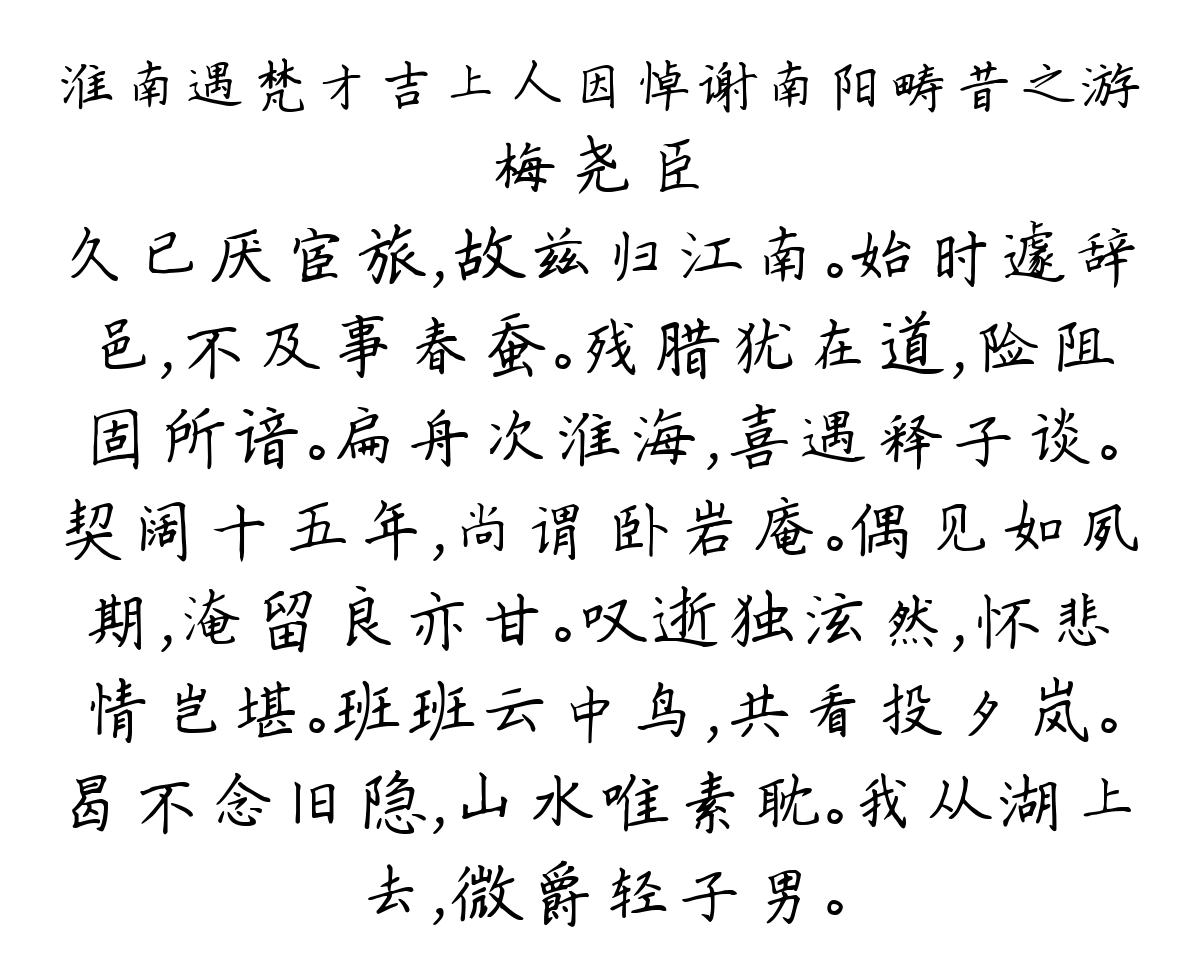 淮南遇梵才吉上人因悼谢南阳畴昔之游
梅尧臣
久已厌宦旅,故兹归江南。始时遽辞
邑,不及事春蚕。残腊犹在道,险阻
固所谙。扁舟次淮海,喜遇释子谈。
契阔十五年,尚谓卧岩庵。偶见如夙
期,淹留良亦甘。叹逝独泫然,怀悲
情岂堪。班班云中鸟,共看投夕岚。
曷不念旧隐,山水唯素耽。我从湖上
去,微爵轻子男。